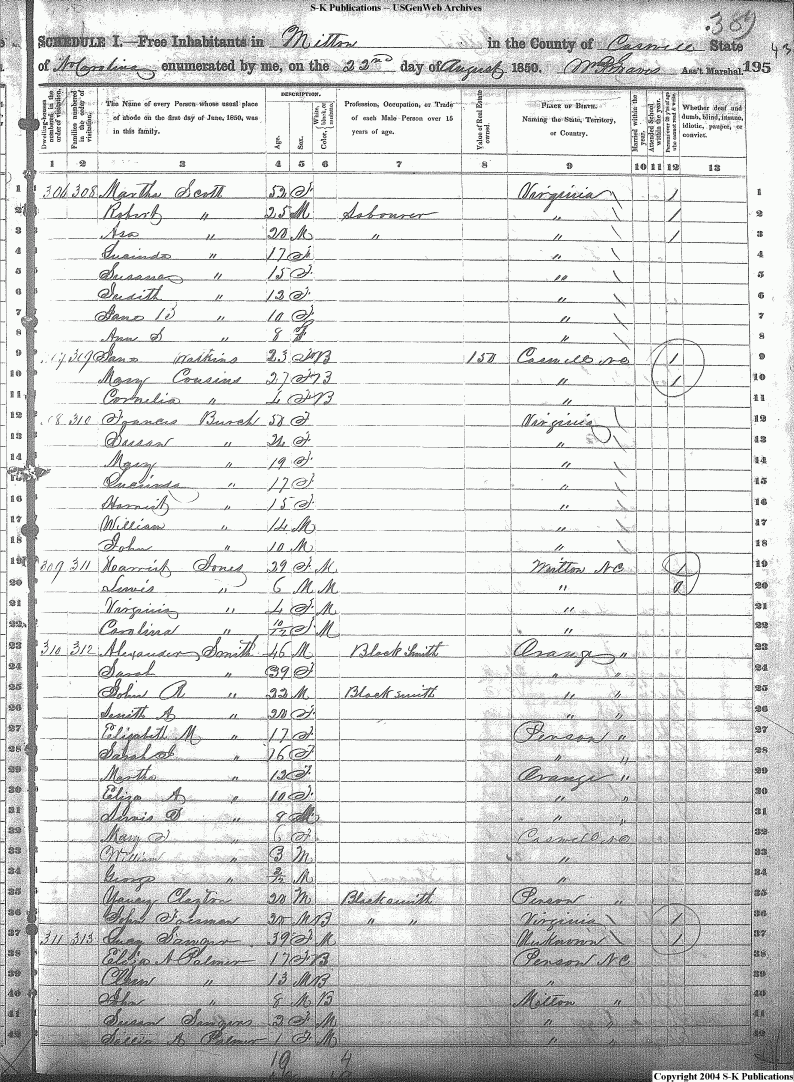 S-K Publications -- USGenWeb Archives
389
SCHEDULE I.—Free Inhabitants in Milton in the County of Caswell State
of N. Carolina enumerated by me, on the 22nd day of August 1850. Ass't Marshal. 195 43
Dwelling-houses numbered, in the order of visitation. Families numbered in the order of visitation. The Name of every Person whose usual place of abode on the first day of June, 1850, was in this family. DESCRIPTION. Age. Sex. Color, White, black, or mulatto. Profession, Occupation, or Trade of each Male Person over 15 years of age. Value of Real Estate owned. PLACE OF BIRTH. Naming the State, Territory, or Country. Married within the year. Attended School within the year. Persons over 20 y'rs of age who cannot read & write. Whether deaf and dumb, blind, insane, idiotic, pauper, or convict.
1 2 3 4 5 6 7 8 9 10 11 12 13
1 306 308 Martha Scott 52 F Virginia \ 1 1
2 Robert " 25 M Labourer " \ 1 2
3 Asa " 20 M " " \ 1 3
4 Lucinda " 17 F " \ 4
5 Susana " 15 F " \ 5
6 Judith " 12 F " \ 6
7 Jane " 10 F " \ 7
8 Ann S " 8 F " \ 8
9 309 Jane Watkins 23 F B 150 Caswell NC 1 9
10 Mary Cousins 27 F B " 1 10
11 Cornelia " 4 F B " 11
12 310 Frances Burch 50 F Virginia \ 12
13 Sussan " 24 F " \ 13
14 Mary " 19 F " \ 14
15 Lucinda " 17 F " \ 15
16 Harriet " 15 F " \ 16
17 William " 14 M " \ 17
18 John " 10 M " \ 18
19 309 311 Harriet Jones 29 F M Milton NC 1 19
20 Lewis " 6 M M " 0 20
21 Virginia " 4 F M " 21
22 Carolina " 10/12 F M " 22
23 310 312 Alexander Smith 46 M Black Smith Orange " 23
24 Sarah " 39 F " " 24
25 John A " 22 M Blacksmith " " 25
26 A " 20 F " " 26
27 Elizabeth M " 17 F Person " 27
28 Sarah " 16 F " " 28
29 Martha " 12 F Orange " 29
30 Eliza A " 10 F " " 30
31 " 8 M " " 31
32 Mary " 6 F Caswell NC 32
33 William " 3 M " 33
34 George " M " 34
35 Clayton 20 M Blacksmith Person " 35
36 John Freeman M B " " Virginia \ 1 36
37 311 313 Lucy 39 F M Unknown \ 1 37
38 Eliza A Palmer 17 F B Person NC 38
39 " 13 M B " 39
40 John " 8 M B Milton " 40
41 Susan 2 F M " " 41
42 Sallie A Palmer 1 F M " " 42
19 4
Copyright 2004 S-K Publications